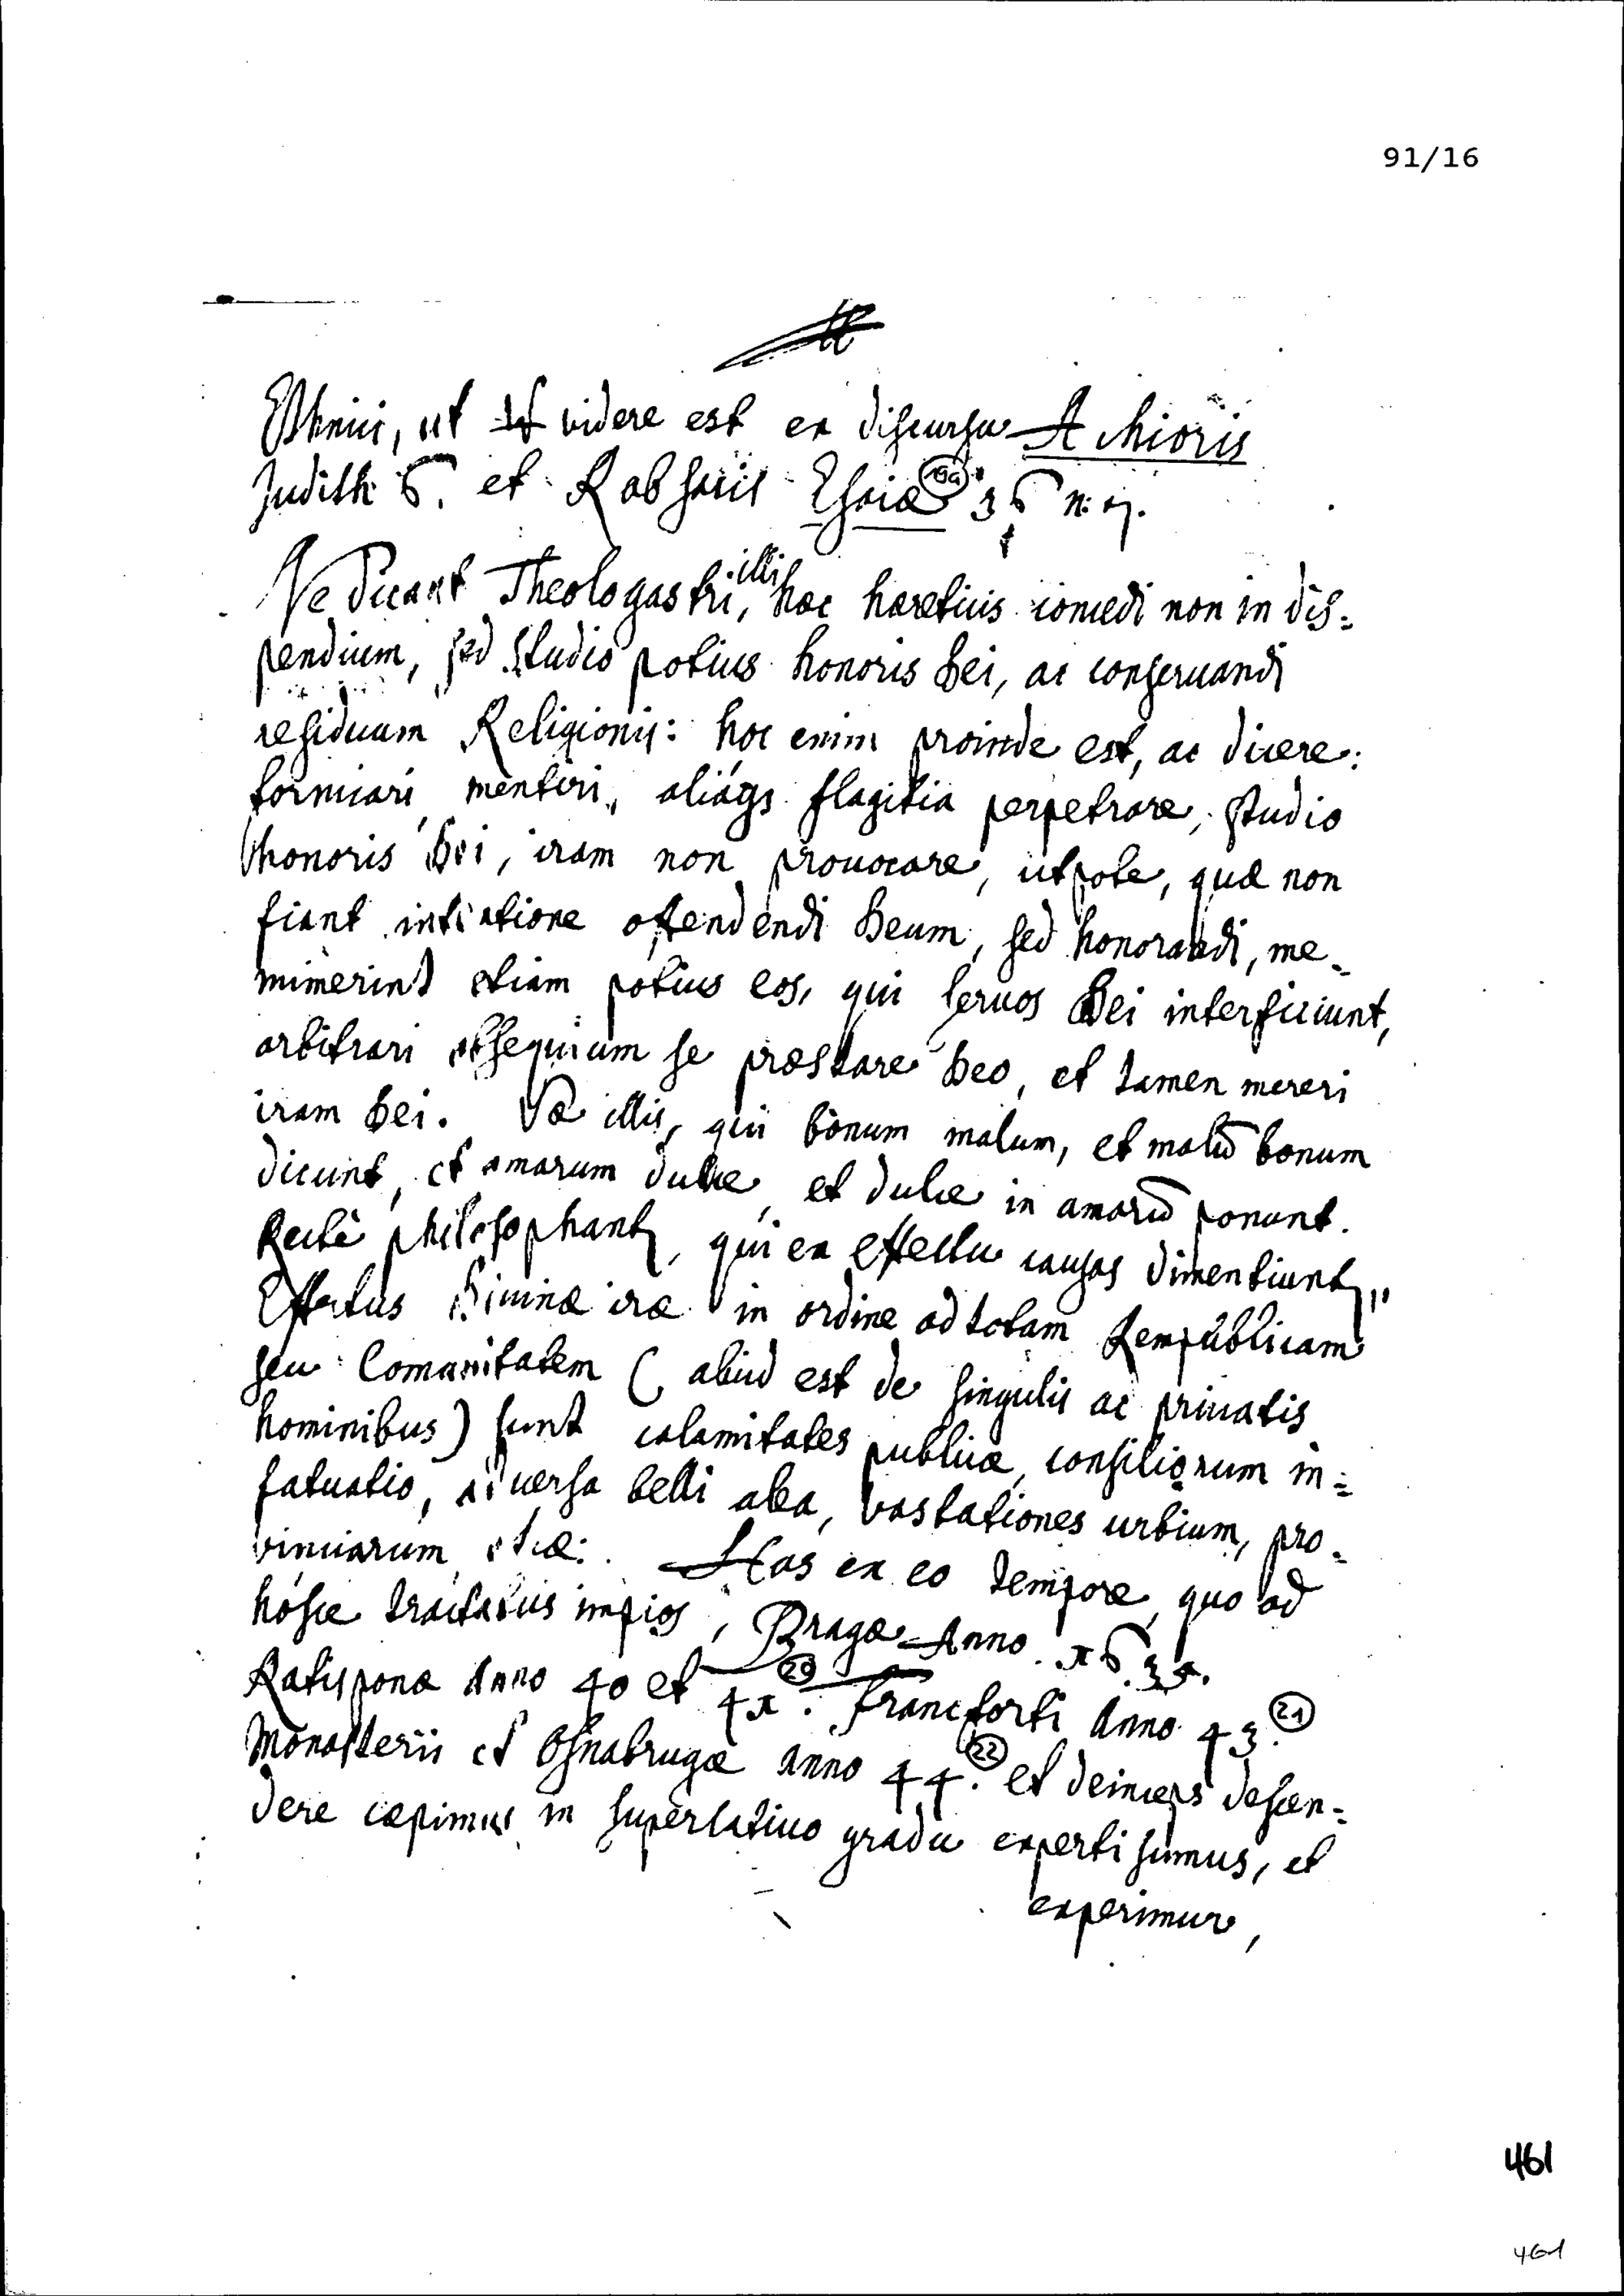 91/16
Ethnici, ut videre est ex discursu Achioris
Judith 6. et Rabsacis Esaiæ 19a 36 n. 7.
Ne dicant Theologastri illi, hæc hæreticis concedi non in dis=
pendium, sed studio potius honoris Dei, ac conseruandi
residuum Religionis: hoc enim proinde est, ac dicere:
fornicari, mentiri, aliaqs flagitia perpetrare, studio
honoris Dei, iram non prouocare, utpote, quæ non
fiant intentione offendendi Deum, sed honorandi, me=
minerint etiam potius eos, qui seruos Dei interficiunt,
arbitrari obsequium se præstare Deo, et tamen mereri
iram Dei. Væ illis, qui bonum malum, et malū bonum
dicunt, et amarum dulce, et dulce in amarū ponunt.
Rectè philosophant, qui ex effectu causas dimentiunt,
Effectus Diuinæ iræ in ordine ad totam Rempublicam
seu Comunitatem (aliud est de singulis ac priuatis
hominibus) sunt calamitates publicæ, consiliorum in=
fatuatio, aduersa belli alea, vastationes urbium, pro=
vinciarum, etcæ: Has ex eo tempore, quo ad
hosce tractatus impios, Pragæ Anno 1635.
Ratisponæ Anno 40 et 41. 20 Francforti Anno 43. 21
Monasterii et Osnabrugæ Anno 44. 22 et deinceps descen=
dere cæpimus in superlatiuo gradu experti sumus, et
experimur,
461
461